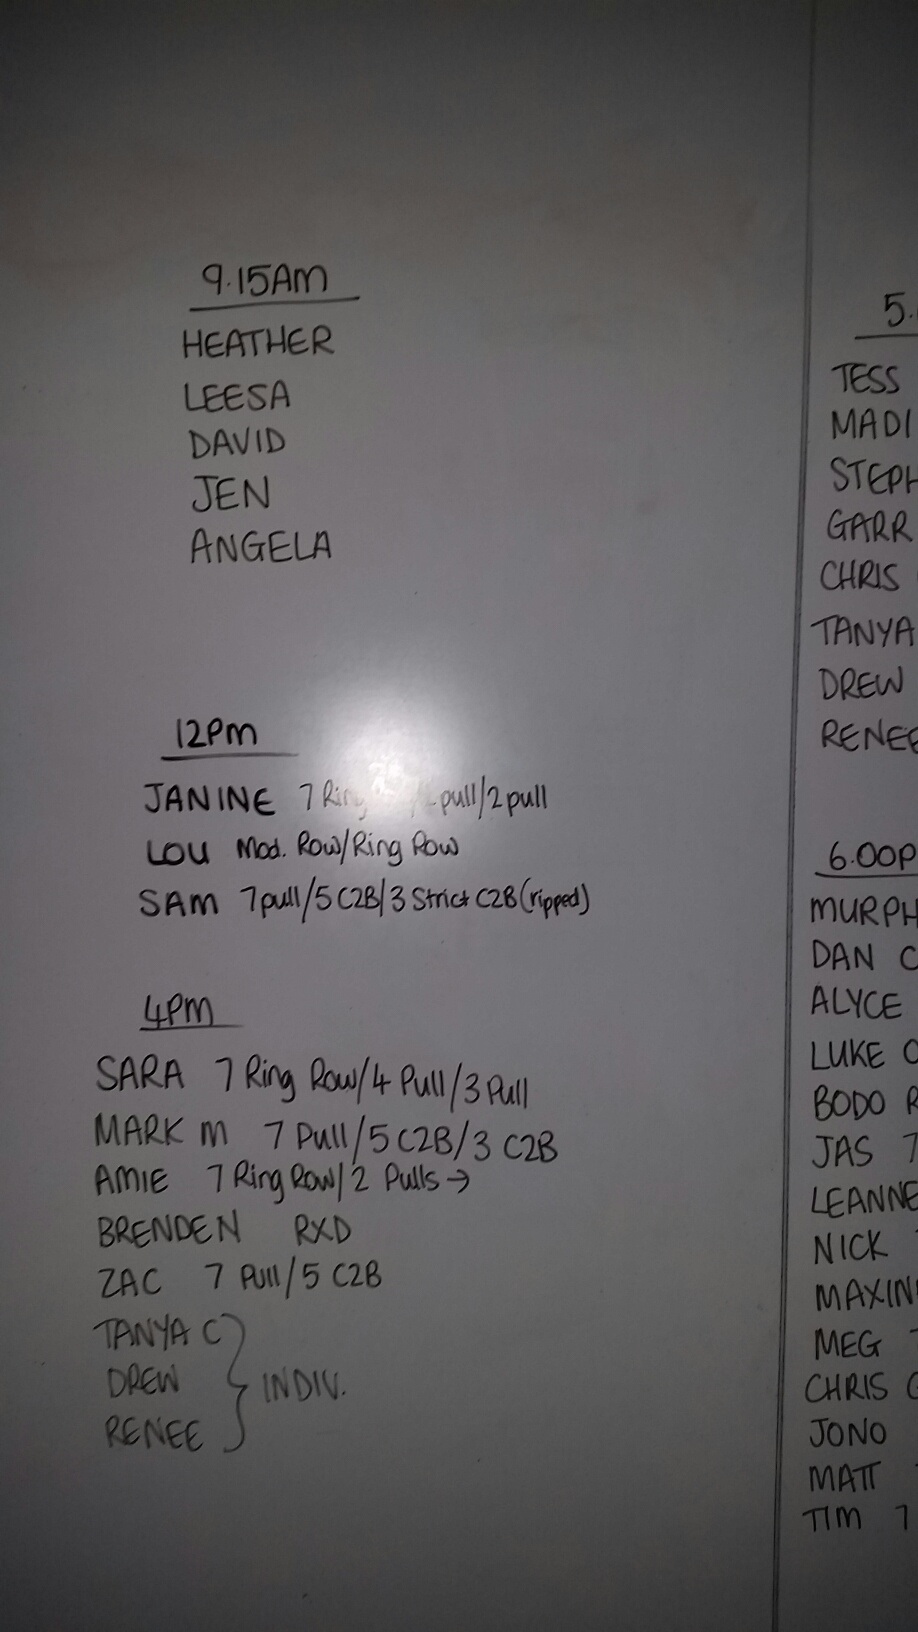 9.15AM
HEATHER
LEESA
DAVID
JEN
ANGELA
12PM
JANINE 7 Ring pull/2 pull
LOU Mod. Row/Ring Row
SAM 7 pull/5 C2B/3 Strict C2B (ripped)
4PM
SARA 7 Ring Row/4 Pull/3 Pull
MARK M 7 Pull/5 C2B/3 C2B
AMIE 7 Ring Row/2 Pulls →
BRENDEN RXD
ZAC 7 Pull/5 C2B
TANYA C
DREW
RENEE
INDIV.
5.
TESS
MADI
STEPH
GARR
CHRIS
TANYA
DREW
RENEE
6.00P
MURPH
DAN C
ALYCE
LUKE
BODO R
JAS 7
LEANNE
NICK
MAXIN
MEG
CHRIS
JONO
MATT
TIM 7